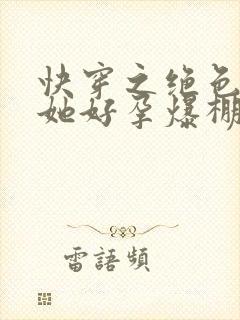 快穿之绝色
她好孕爆棚
雷語頻